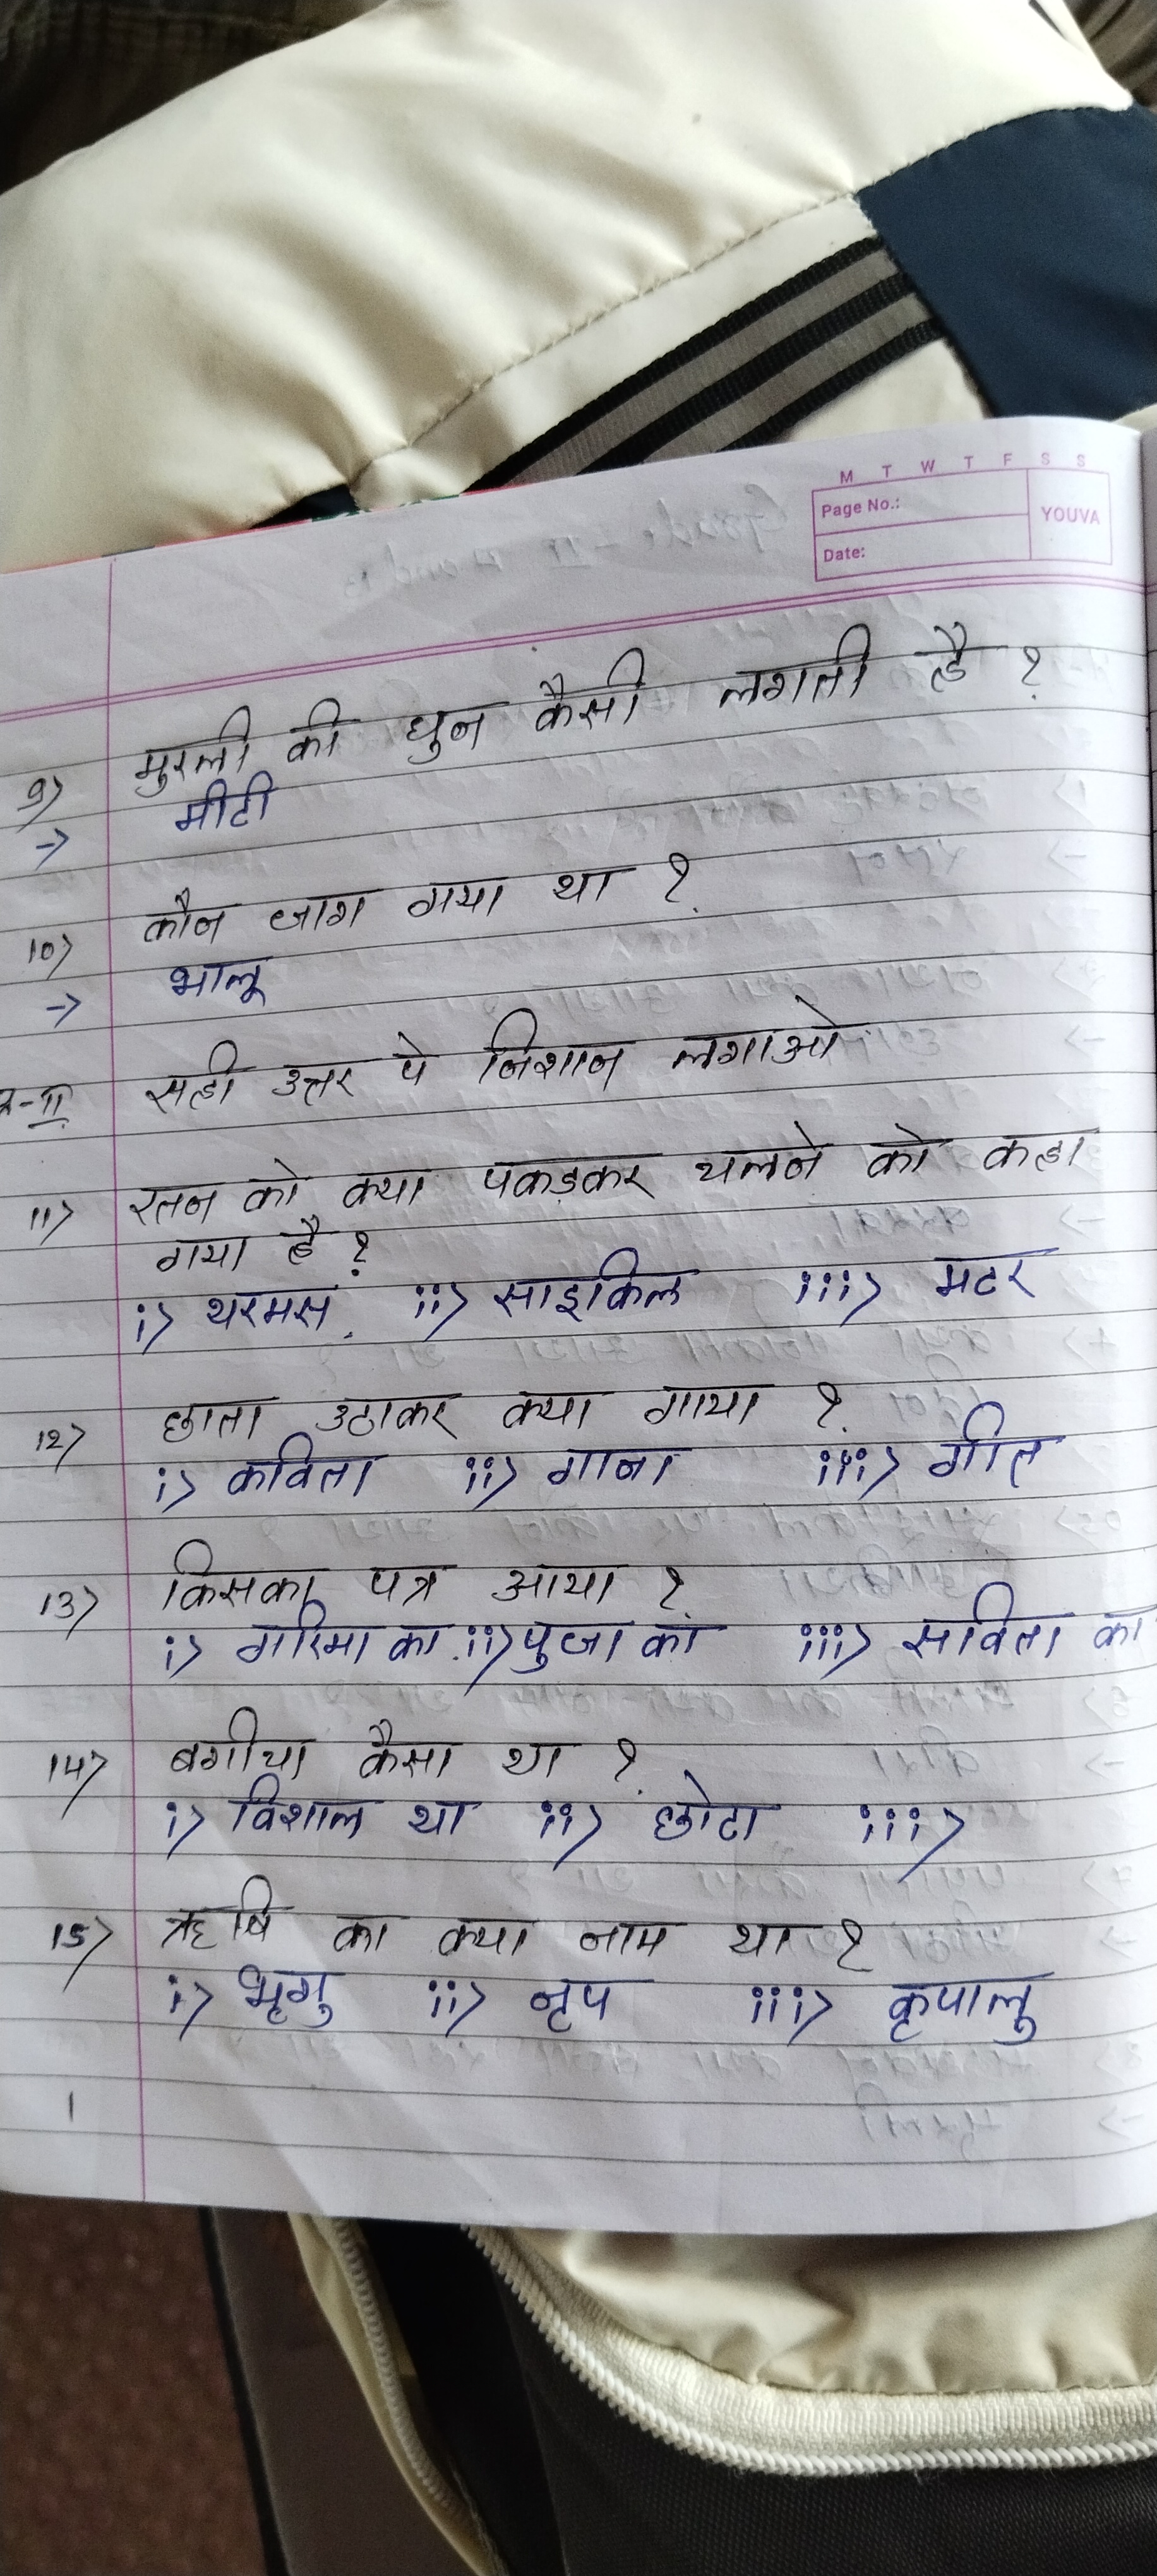 M T W T F S S
Page No.:
YOUVA
Date:
9) मुरली की धुन कैसी लगती है ?
→ मीटी
10) कौन जाग गया था ?
→ भालू
II सही उत्तर पे निशान लगाओ
11) रतन को क्या पकड़कर चलने को कहा
गया है ?
i) थरमस ii) साइकिल iii) मटर
12) छाता उठाकर क्या गाया ?
i) कविता ii) गाना iii) गीत
13) किसका पत्र आया ?
i) गरिमा का ii) पुजा का iii) सविता का
14) बगीचा कैसा था ?
i) विशाल था ii) छोटा iii)
15) ऋषि का क्या नाम था ?
i) भृगु ii) नृप iii) कृपालु